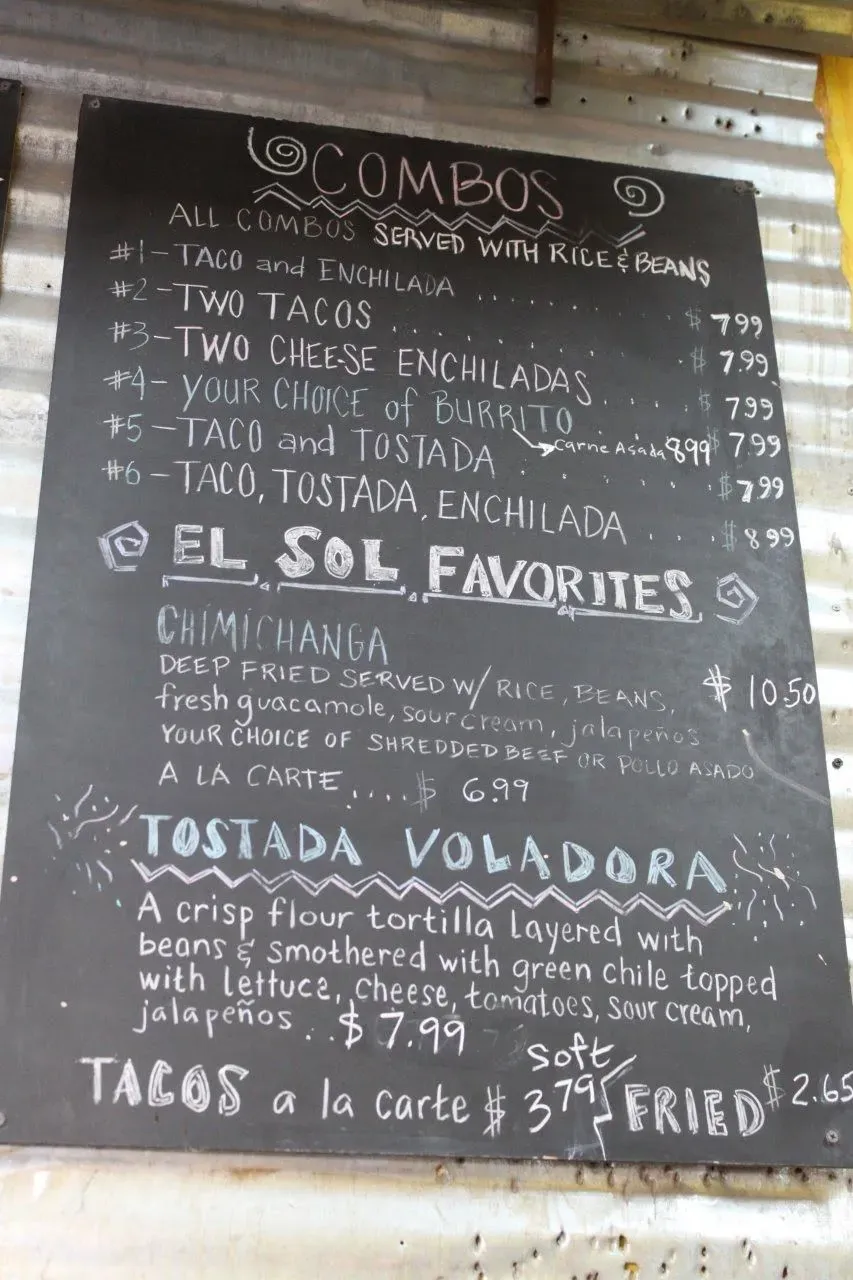 COMBOS
ALL COMBOS SERVED WITH RICE & BEANS
#1 - TACO and ENCHILADA ........ $ 7.99
#2 - TWO TACOS ........ $ 7.99
#3 - TWO CHEESE ENCHILADAS .... $ 7.99
#4 - YOUR CHOICE of BURRITO ... $ 7.99
Carne Asada 8.99
#5 - TACO and TOSTADA ...... $ 7.99
#6 - TACO, TOSTADA, ENCHILADA ... $ 8.99
EL SOL FAVORITES
CHIMICHANGA
DEEP FRIED SERVED W/ RICE, BEANS, $ 10.50
fresh guacamole, sour cream, jalapeños
YOUR CHOICE OF SHREDDED BEEF OR POLLO ASADO
A LA CARTE .... $ 6.99
TOSTADA VOLADORA
A crisp flour tortilla Layered with
beans & smothered with green chile topped
with lettuce, cheese, tomatoes, sour cream,
jalapeños .. $ 7.99
Soft
TACOS a la carte $ 3.79 FRIED $ 2.65